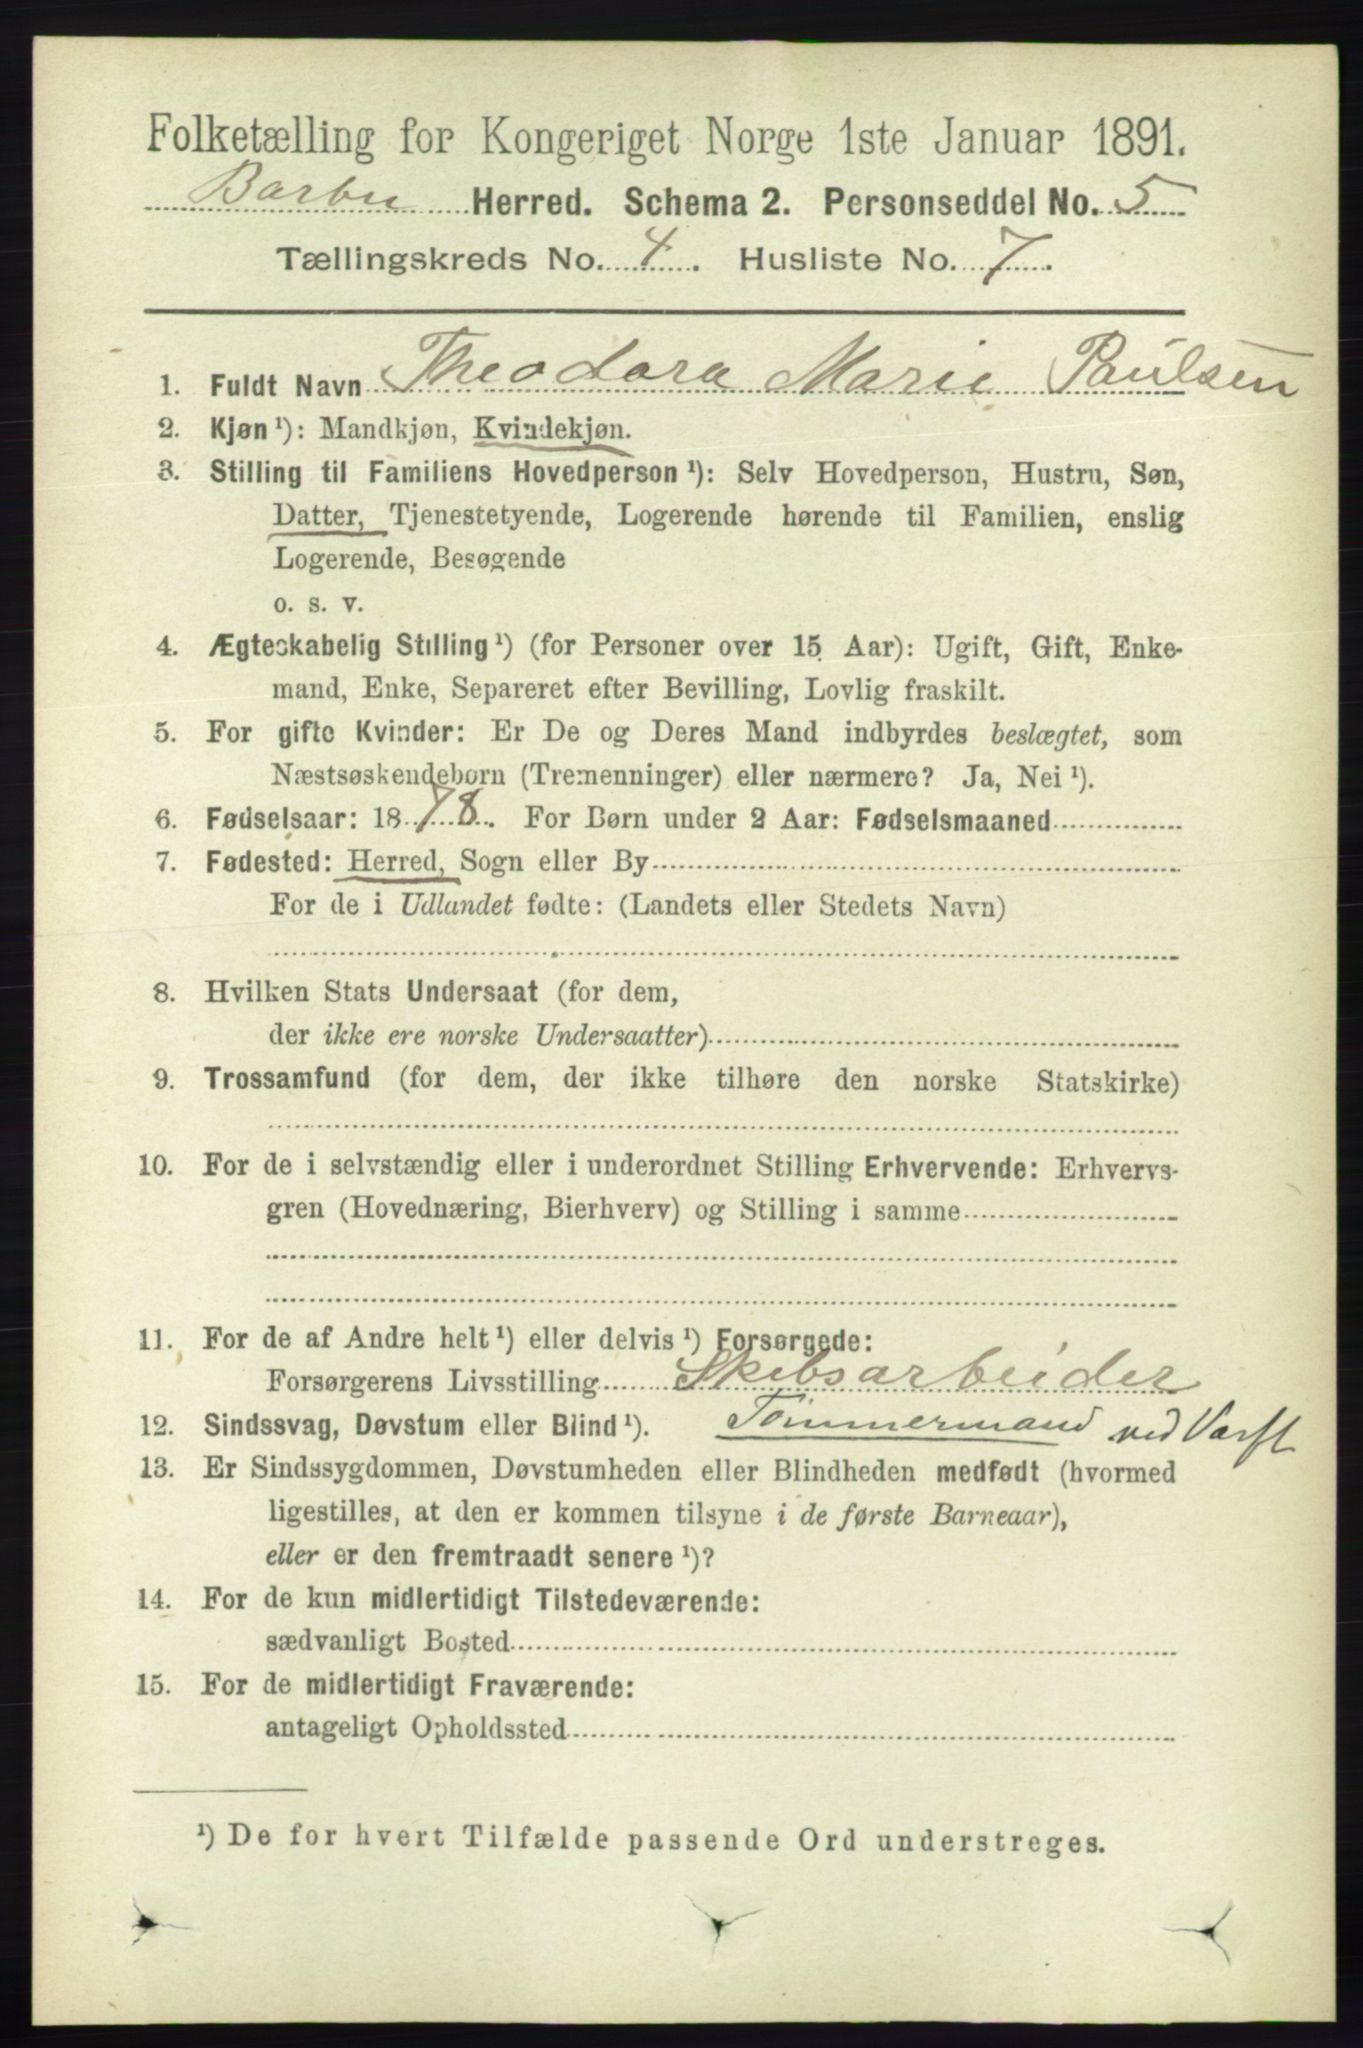 Folketælling for Kongeriget Norge 1ste Januar 1891.
Barbu Herred. Schema 2. Personseddel No. 5
Tællingskreds No. 4. Husliste No. 7.
1. Fuldt Navn Theodora Marie Paulsen
2. Kjøn ¹): Mandkjøn, Kvindekjøn.
3. Stilling til Familiens Hovedperson ¹): Selv Hovedperson, Hustru, Søn,
Datter, Tjenestetyende, Logerende hørende til Familien, enslig
Logerende, Besøgende
o. s. v.
4. Ægteskabelig Stilling ¹) (for Personer over 15 Aar): Ugift, Gift, Enke-
mand, Enke, Separeret efter Bevilling, Lovlig fraskilt.
5. For gifte Kvinder: Er De og Deres Mand indbyrdes beslægtet, som
Næstsøskendebørn (Tremenninger) eller nærmere? Ja, Nei ¹).
6. Fødselsaar: 1878. For Børn under 2 Aar: Fødselsmaaned
7. Fødested: Herred, Sogn eller By
For de i Udlandet fødte: (Landets eller Stedets Navn)
8. Hvilken Stats Undersaat (for dem,
der ikke ere norske Undersaatter)
9. Trossamfund (for dem, der ikke tilhøre den norske Statskirke)
10. For de i selvstændig eller i underordnet Stilling Erhvervende: Erhvervs-
gren (Hovednæring, Bierhverv) og Stilling i samme
11. For de af Andre helt ¹) eller delvis ¹) Forsørgede:
Forsørgerens Livsstilling Skibsarbeider
12. Sindssvag, Døvstum eller Blind ¹). Tømmermand ved Værft
13. Er Sindssygdommen, Døvstumheden eller Blindheden medfødt (hvormed
ligestilles, at den er kommen tilsyne i de første Barneaar),
eller er den fremtraadt senere ¹)?
14. For de kun midlertidigt Tilstedeværende:
sædvanligt Bosted
15. For de midlertidigt Fraværende:
antageligt Opholdssted
¹) De for hvert Tilfælde passende Ord understreges.